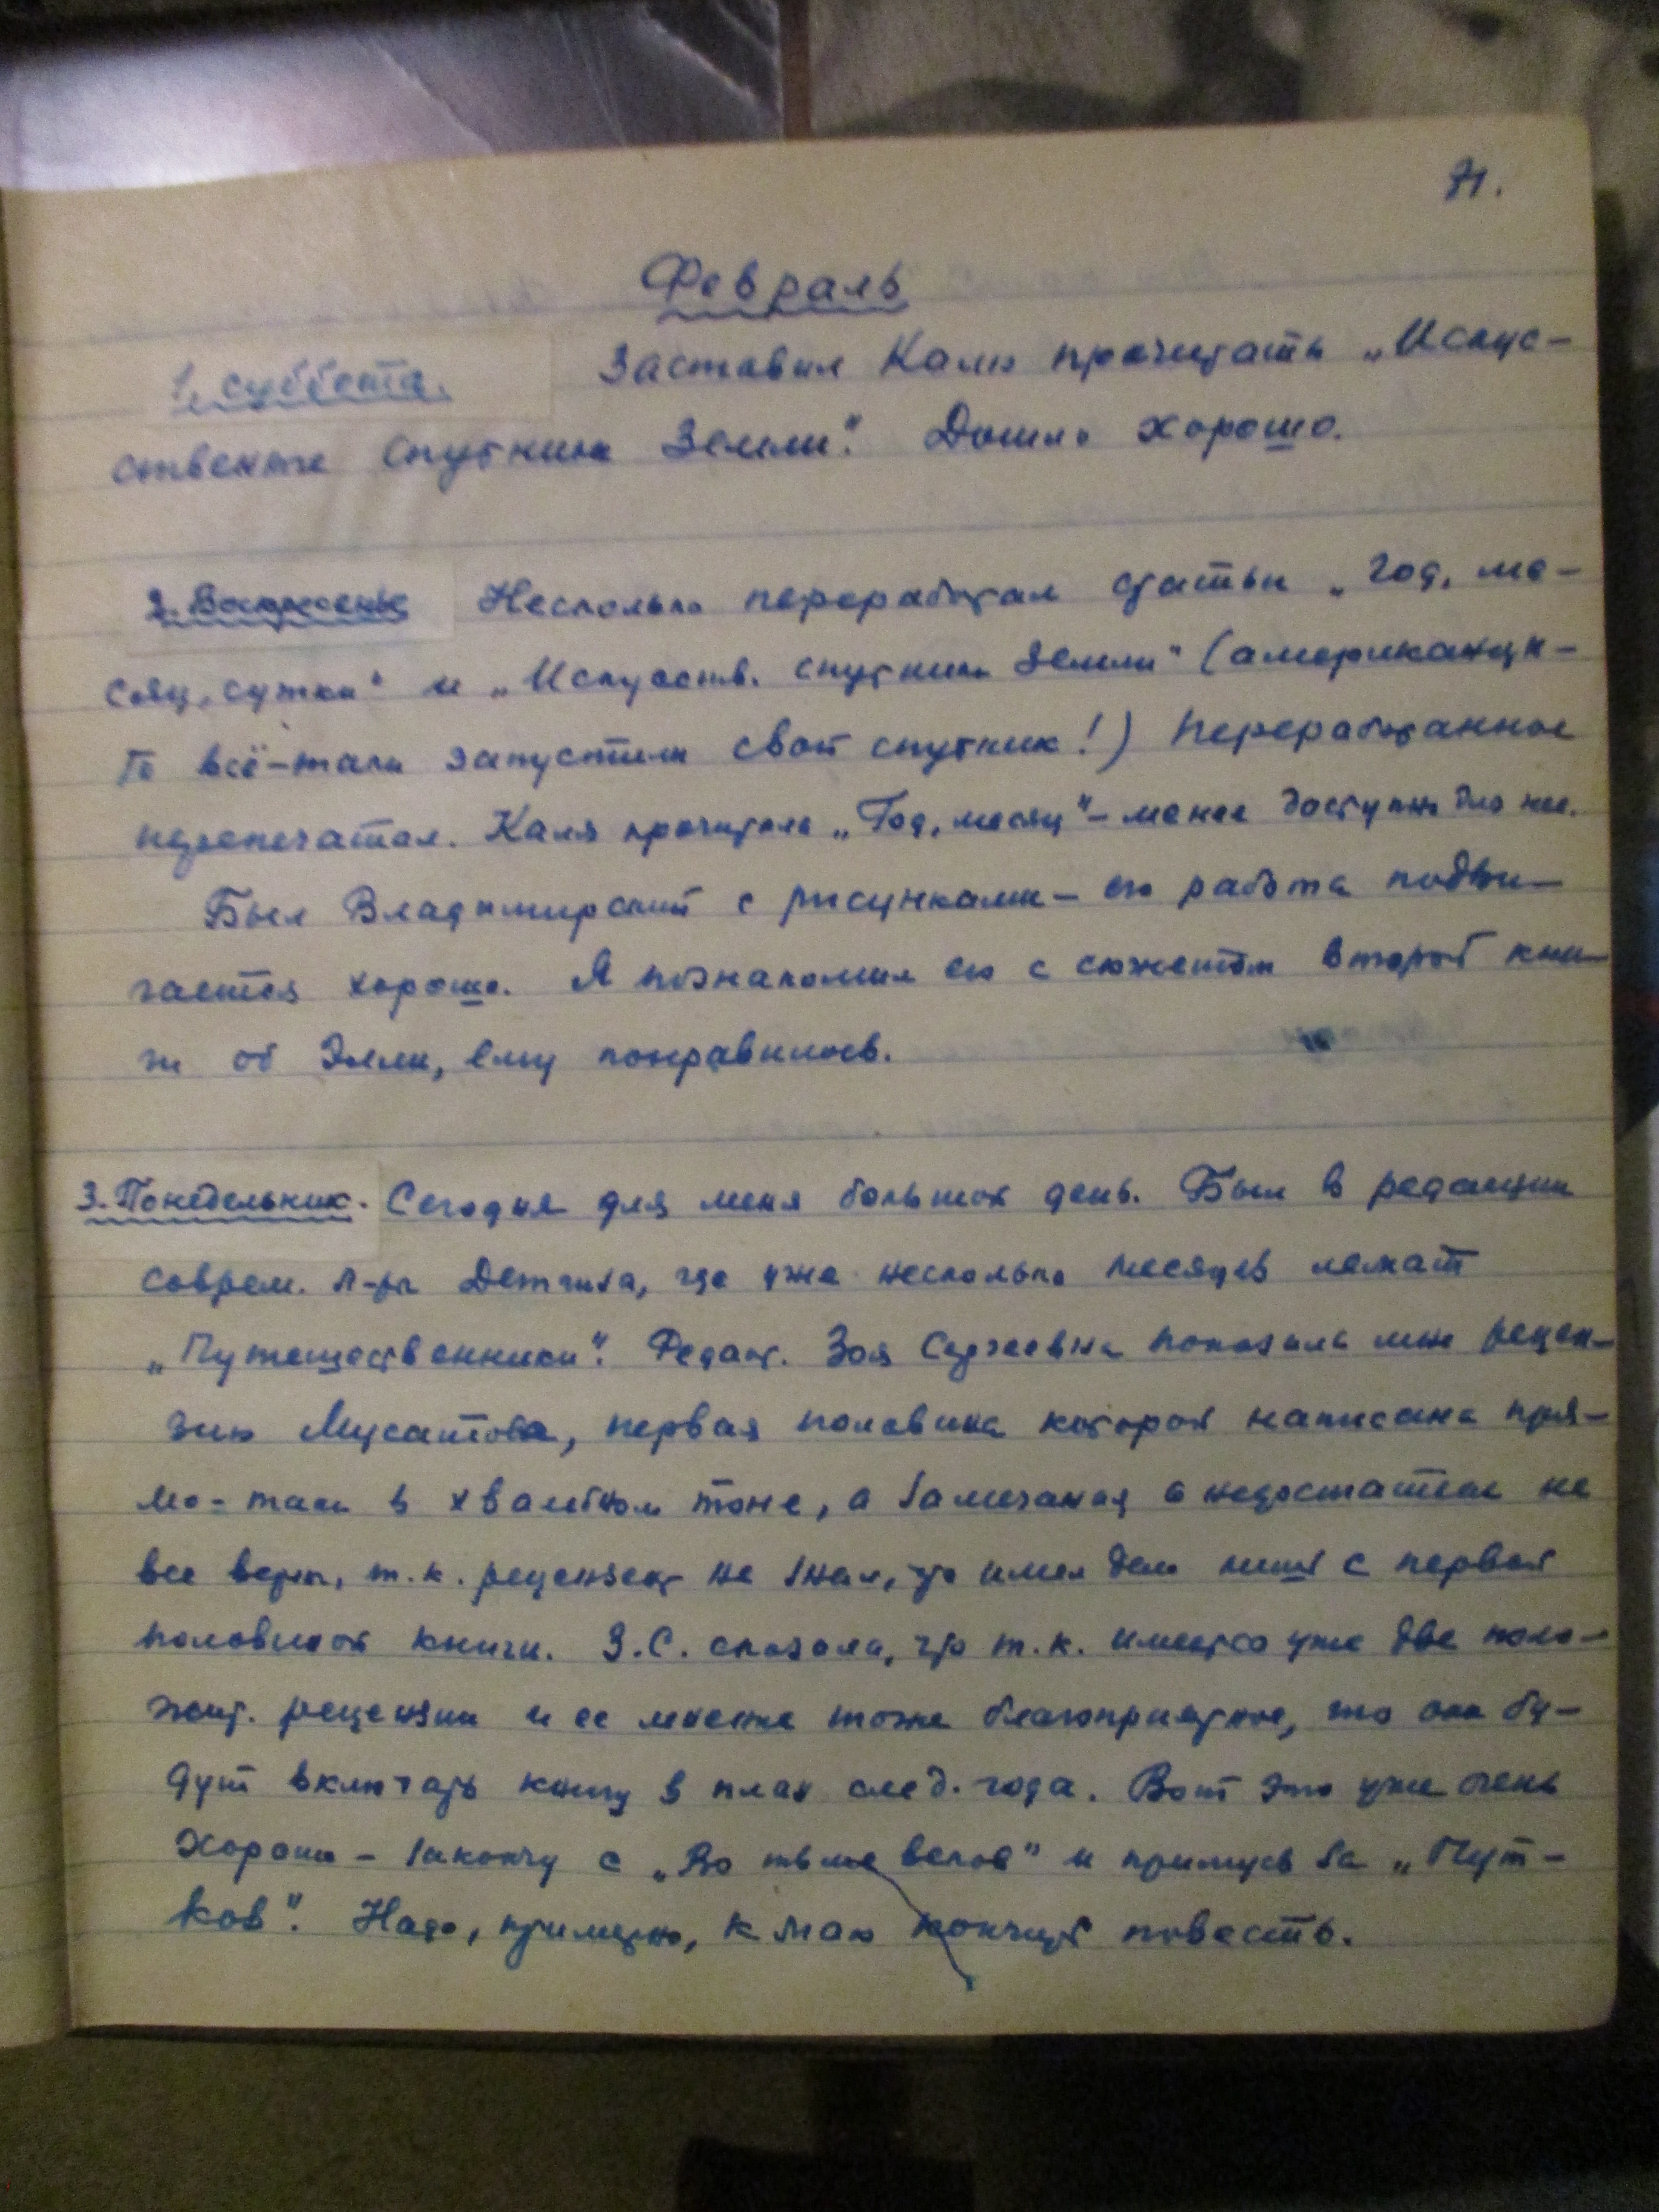 71.
Февраль
1. суббота. Заставил Калю прочитать „Искус-
ственные спутники Земли". Дошло хорошо.
2. Воскресенье Несколько переработал статьи „Год, ме-
сяц, сутки" и „Искусств. спутники Земли" (американцы-
то всё-таки запустили свой спутник!) Переработанное
перепечатал. Каля прочитала „Год, месяц" – менее доступно для нее.
Был Владимирский с рисунками – его работа подви-
гается хорошо. Я познакомил его с сюжетом второй кни-
ги об Элли, ему понравилось.
3. Понедельник. Сегодня для меня большой день. Был в редакции
соврем. л-ры Детгиза, где уже несколько месяцев лежат
„Путешественники". Редакт. Зоя Сергеевна показала мне рецен-
зию Мусатова, первая половина которой написана пря-
мо-таки в хвалебном тоне, а замечания о недостатках не
все верны, т.к. рецензент не знал, что имел дело лишь с первой
половиной книги. З.С. сказала, что т.к. имеются уже две поло-
жит. рецензии и ее мнение тоже благоприятное, то они бу-
дут включать книгу в план след. года. Вот это уже очень
хорошо – закончу с „Во тьме веков" и примусь за „Пут-
ков". Надо, примерно, к маю кончить повесть.